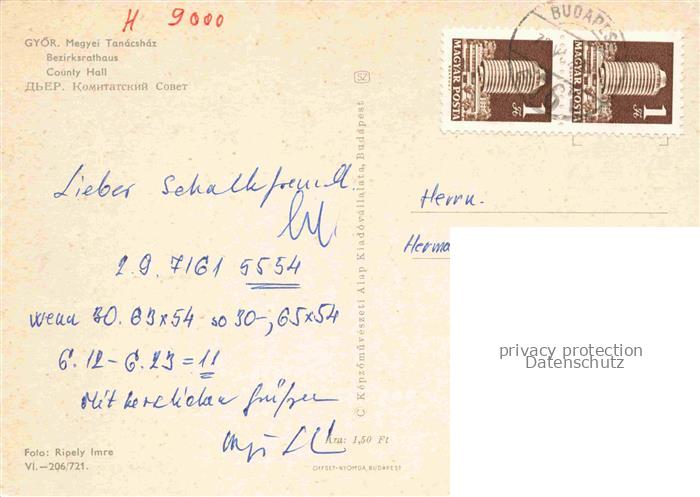 H 9000
GYŐR. Megyei Tanácsház
Bezirksrathaus
County Hall
ДЬЕР. Комитатский Совет
SZ
BUDAPES
MAGYAR POSTA
1 Ft
MAGYAR POSTA
1
Lieber Schachfreund.
2.9. 7161 5554
wenn 30. 63x54 so 30-, 65x54
6.12 - 6.23 = 11
Mit herzlichen Grüßen
Herrn.
Herma
privacy protection
Datenschutz
© Képzőművészeti Alap Kiadóvállalata, Budapest
Foto: Ripely Imre
VI.—206/721.
Ára: 1,50 Ft
OFFSET-NYOMDA, BUDAPEST